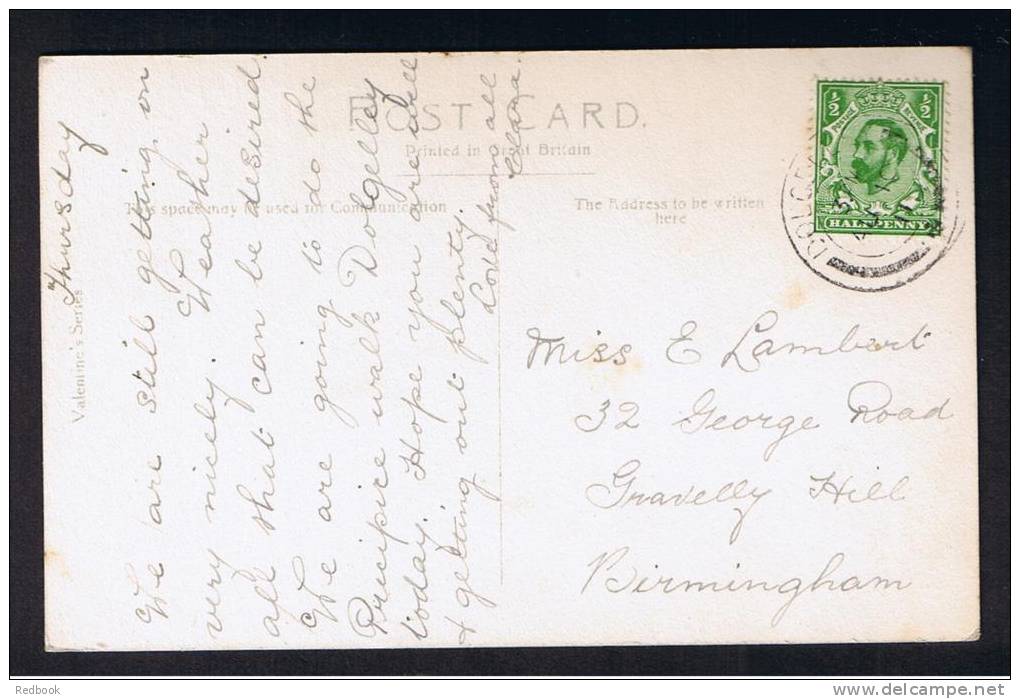 POST CARD.
Printed in Great Britain
This space may be used for Communication
The Address to be written
here
Valentine's Series
Thursday
We are still getting on
very nicely. Weather
all that can be desired.
We are going to do the
Precipice walk Dolgelley
today. Hope you are well
& getting out plenty.
Love from all
Clara.
Miss E Lambert
32 George Road
Gravelly Hill
Birmingham
½ ½
POSTAGE REVENUE
HALFPENNY
Redbook
www.delcampe.net